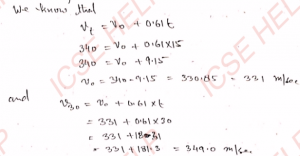 We know that
V_t = V_0 + 0.61t
340 = V_0 + 0.61×15
340 = V_0 + 9.15
V_0 = 340 - 9.15 = 330.85 - 331 m/sec
and
V_30 = V_0 + 0.61×t
= 331 + 0.61×20
= 331 + 18.31
= 331 + 18.3 = 349.0 m/sec.
ICSE HELP
ICSE HELP